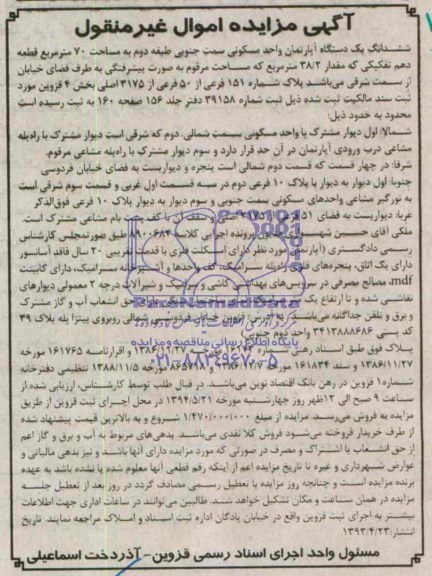 آگهی مزایده اموال غیرمنقول
ششدانگ یک دستگاه آپارتمان واحد مسکونی سمت جنوبی طبقه دوم به مساحت ۷۰ مترمربع قطعه
دهم تفکیکی که مقدار ۳۸/۲ مترمربع که مساحت مرقوم به صورت پیشرفتگی به طرف فضای خیابان
از سمت شرقی می‌باشد پلاک شماره ۱۵۱ فرعی از ۵۰ فرعی از ۳۱۷۵ اصلی بخش ۴ قزوین مورد
ثبت سند مالکیت ثبت شده ذیل ثبت شماره ۳۹۱۵۸ دفتر جلد ۱۵۶ صفحه ۱۶۰ به ثبت رسیده است
محدود به حدود ذیل:
شمالا: اول دیوار مشترک با واحد مسکونی سمت شمالی. دوم که شرقی است دیوار مشترک با راه‌پله
مشاعی درب ورودی آپارتمان در آن حد قرار دارد و سوم دیوار مشترک با راه‌پله مشاعی مرقوم.
شرقا: در چهار قسمت که قسمت دوم شمالی است پنجره و دیواریست به فضای خیابان فردوسی
جنوبا: اول دیوار به دیوار با پلاک ۱۰ فرعی دوم در سه قسمت اول غربی و قسمت سوم شرقی است
به نورگیر مشاعی واحدهای مسکونی سمت جنوبی و سوم دیوار به دیوار پلاک ۱۰ فرعی فوق‌الذکر
غربا: دیواریست به فضای ۵۱ سقف آن با کف پشت بام مشاعی مشترک است.
ملکی آقای حسین پرونده اجرایی کلاسه ۸۹۰۰۶۸۴ طبق صورتمجلس کارشناس
رسمی دادگستری (آپارتمان مورد نظر دارای اسکلت فلزی با قدمت تقریبی ۲۰ سال فاقد آسانسور
دارای یک اتاق، پنجره‌های فلزی راه‌پله سرامیک، کف واحدها و آشپزخانه سرامیک، دارای کابینت
mdf، مصالح مصرفی در سرویس‌های بهداشتی کاشی و سرامیک و شیرآلات درجه ۲ معمولی دیوارهای
نقاشی شده و تا ارتفاع یک حق انشعاب آب و گاز مشترک
و برق و تلفن جداگانه می‌باشد. به آدرس: قزوین خیابان فردوسی شمالی روبروی پیتزا پله پلاک ۳۹
کد پستی ۳۴۱۳۸۸۸۶۸۶ واحد دوم جنوبی)
پلاک فوق طبق اسناد رهنی شماره ۱۳۸۶/۱۱/۲۷ و اقرارنامه ۱۶۱۷۶۵ مورخه
۱۳۸۶/۱۱/۲۷ و سند ۱۶۱۸۳۴ مورخه مورخه ۱۳۸۸/۱۱/۵ تنظیمی دفترخانه
شماره ۱ قزوین در رهن بانک اقتصاد نوین می‌باشد. در قبال طلب توسط کارشناس، ارزیابی شده از
ساعت ۹ صبح الی ۱۲ظهر روز چهارشنبه مورخه ۱۳۹۴/۵/۲۱ در محل اجرای ثبت قزوین از طریق
مزایده به فروش می‌رسد. مزایده از مبلغ ۱/۴۷۰/۰۰۰/۰۰۰ شروع و به بالاترین قیمت پیشنهاد شده
از طرف خریدار فروخته می‌شود فروش کلا نقدی می‌باشد. بدهی‌های مربوط به آب و برق و گاز اعم
از حق انشعاب یا اشتراک و مصرف در صورتی که مورد مزایده دارای آنها باشد و نیز بدهی مالیاتی و
عوارض شهرداری و غیره تا تاریخ مزایده اعم از اینکه رقم قطعی آنها معلوم شده یا نشده باشد به عهده
برنده مزایده است و چنانچه روز مزایده با تعطیل رسمی مصادف گردد در روز بعد از تعطیل جلسه
مزایده در همان ساعت و مکان تشکیل خواهد شد. طالبین می‌توانند در ساعات اداری جهت اطلاعات
بیشتر به اجرای ثبت قزوین واقع در خیابان پادگان اداره ثبت اسناد و املاک مراجعه نمایند. تاریخ
انتشار:۱۳۹۴/۴/۲۳
مسئول واحد اجرای اسناد رسمی قزوین- آذردخت اسماعیلی
پایگاه اطلاع رسانی مناقصه و مزایده
۰۲۱-۸۸۳۴۹۶۷۰-۵